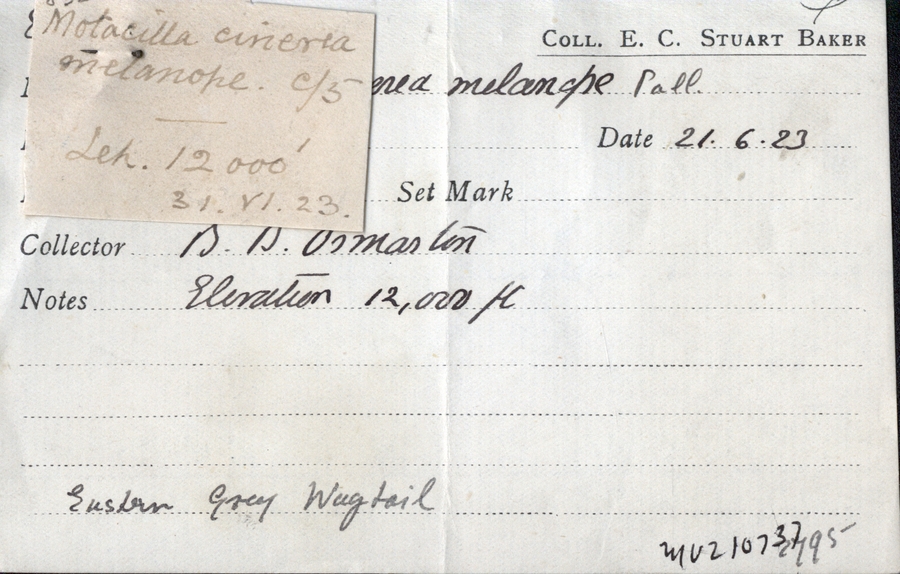 Motacilla cinerea
melanope. c/5
Leh. 12000'
31. VI. 23.
COLL. E. C. STUART BAKER
erea melanope Pall.
Date 21. 6. 23
Set Mark
Collector B. B. Osmaston
Notes Elevation 12,000 ft
Eastern Grey Wagtail